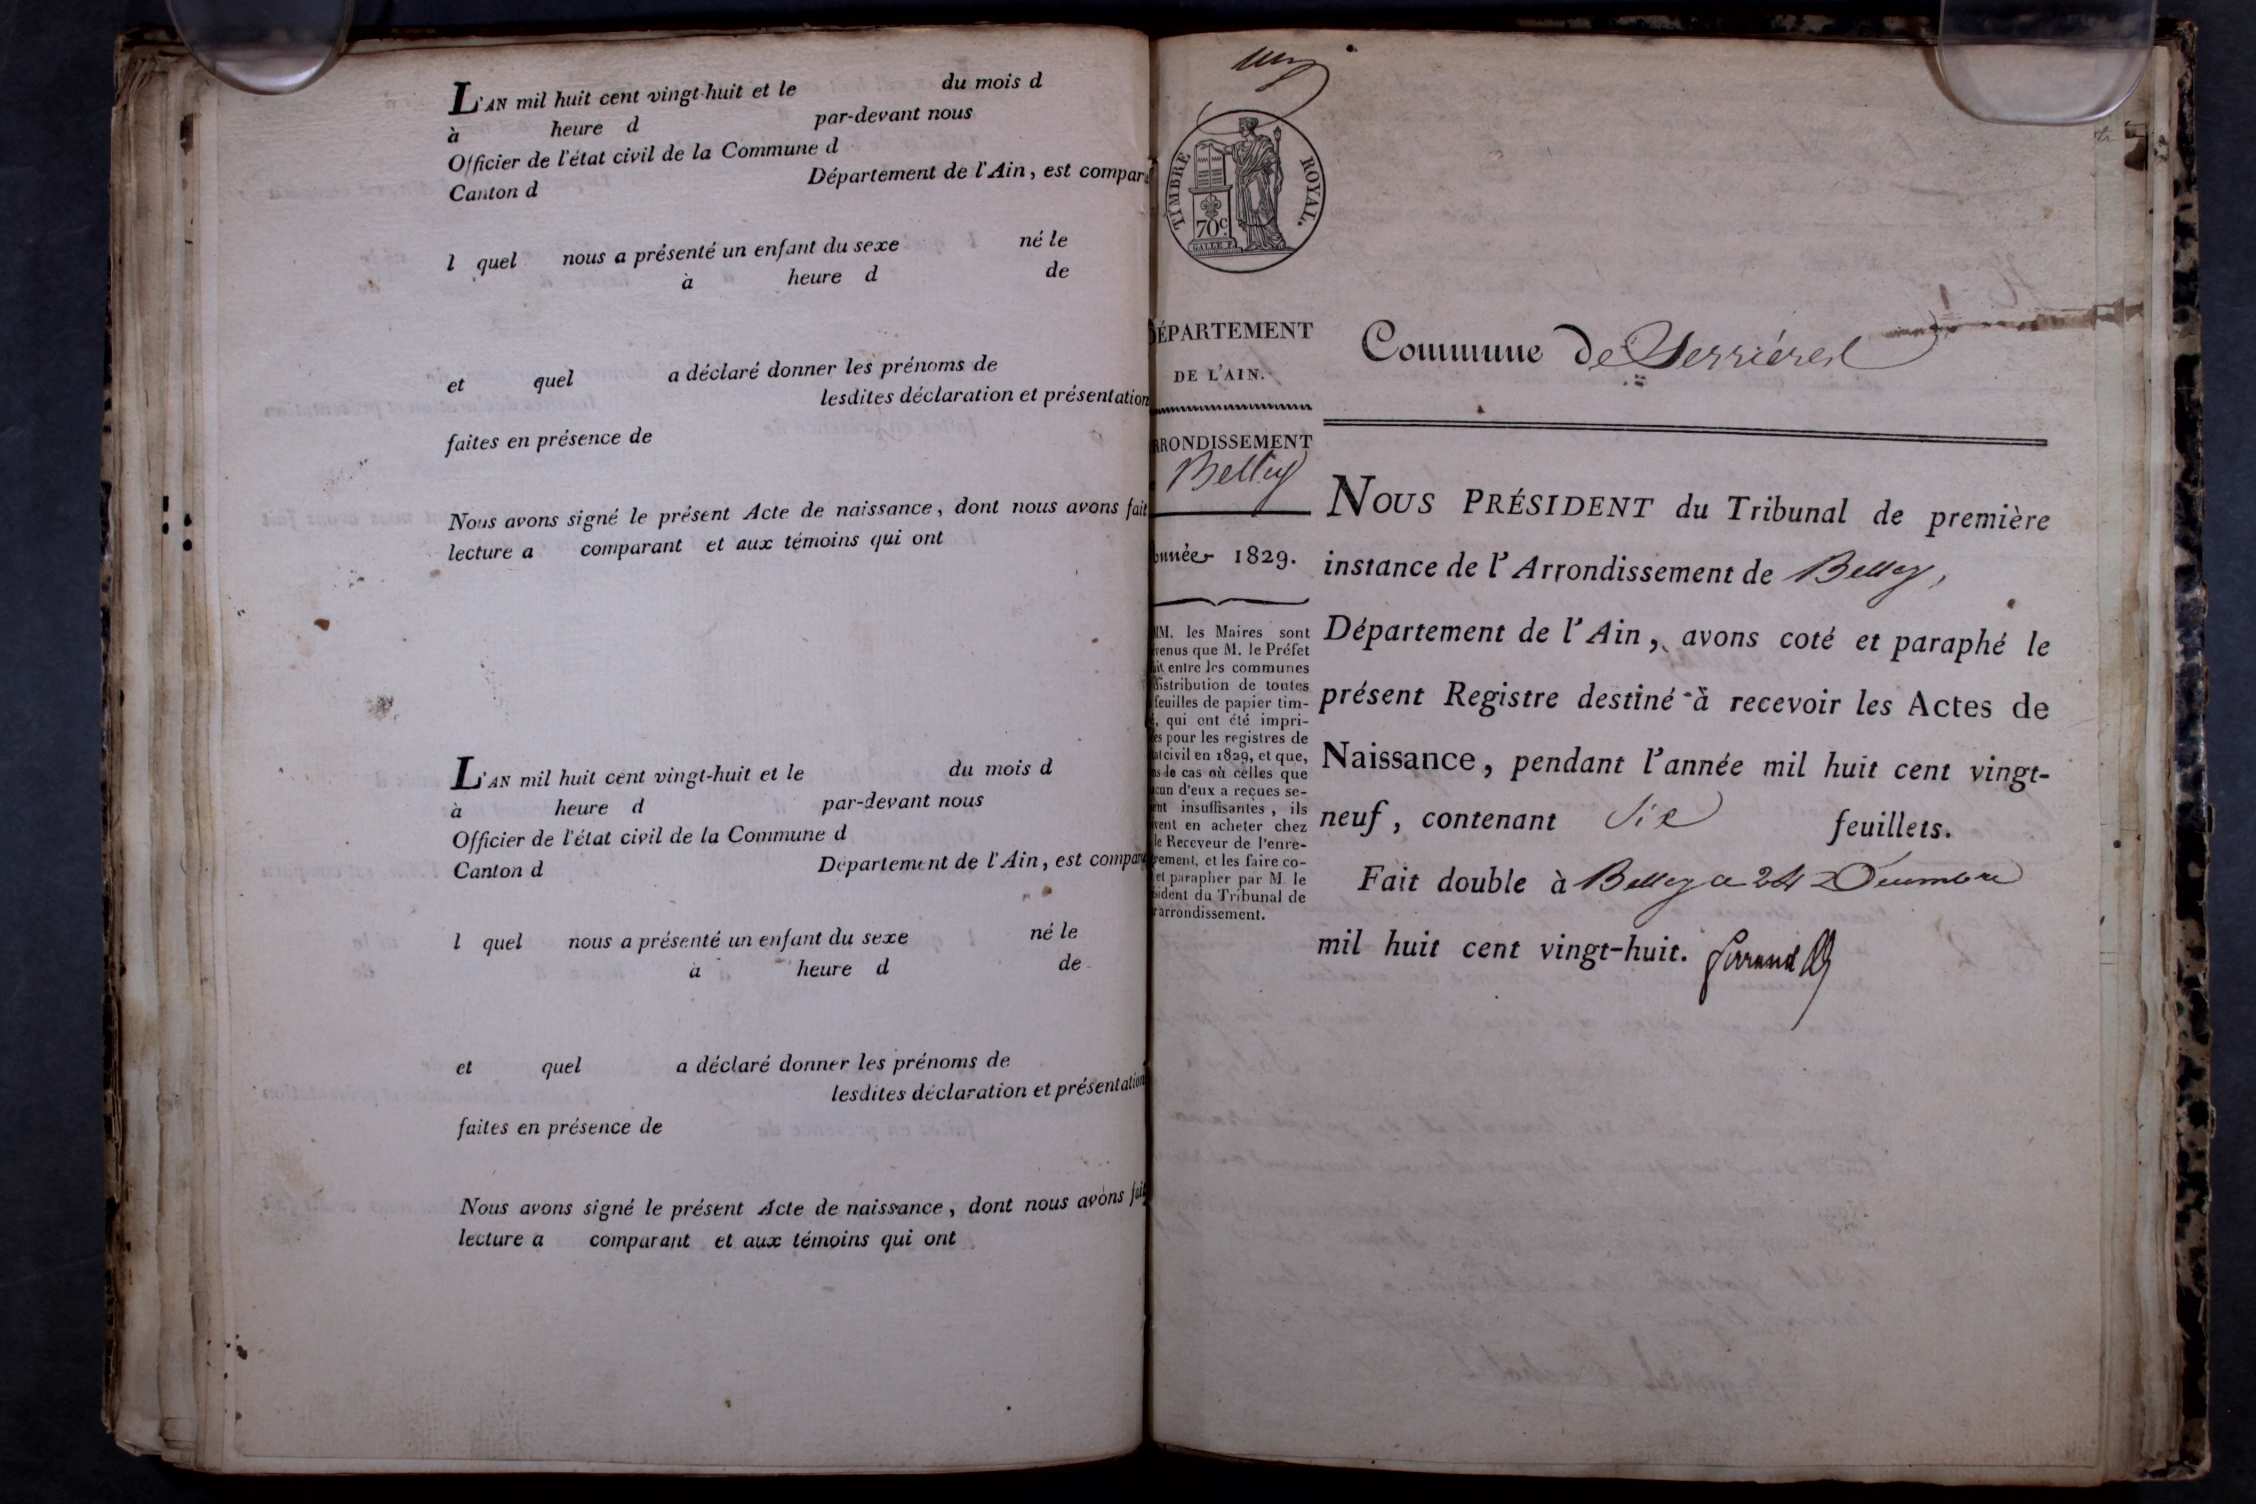 L'AN mil huit cent vingt-huit et le du mois d
à heure d par-devant nous
Officier de l'état civil de la Commune d
Canton d Département de l'Ain, est compar
l quel nous a présenté un enfant du sexe né le
à heure d de
et quel a déclaré donner les prénoms de
lesdites déclaration et présentation
faites en présence de
Nous avons signé le présent Acte de naissance, dont nous avons fait
lecture a comparant et aux témoins qui ont
L'AN mil huit cent vingt-huit et le du mois d
à heure d par-devant nous
Officier de l'état civil de la Commune d
Canton d Département de l'Ain, est compar
l quel nous a présenté un enfant du sexe né le
à heure d de
et quel a déclaré donner les prénoms de
lesdites déclaration et présentation
faites en présence de
Nous avons signé le présent Acte de naissance, dont nous avons fait
lecture a comparant et aux témoins qui ont
TIMBRE ROYAL.
70 c.
DÉPARTEMENT
DE L'AIN.
RRONDISSEMENT
Belley
nnée 1829.
MM. les Maires sont
venus que M. le Préfet
it entre les communes
distribution de toutes
feuilles de papier tim-
, qui ont été impri-
es pour les registres de
at civil en 1829, et que,
ns le cas où celles que
cun d'eux a reçues se-
ent insuffisantes, ils
vent en acheter chez
le Receveur de l'enre-
rement, et les faire co-
et parapher par M. le
sident du Tribunal de
arrondissement.
Commune de Serrières
NOUS PRÉSIDENT du Tribunal de première
instance de l'Arrondissement de Belley,
Département de l'Ain, avons coté et paraphé le
présent Registre destiné à recevoir les Actes de
Naissance, pendant l'année mil huit cent vingt-
neuf, contenant Six feuillets.
Fait double à Belley ce 24 Décembre
mil huit cent vingt-huit.